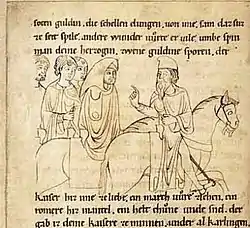 guldin. die schellen clungen. uon ime. sam daz
ze seit spile. andere wunder uurt er uile. umbe spin
man deme herzogen. zwene guldine sporen. der
kaiser hiz ime ein march uure ein
romere hiz mantel. ein helt chune unde snel. der
gab iz deme kaisere ze minnen. under al karlingen